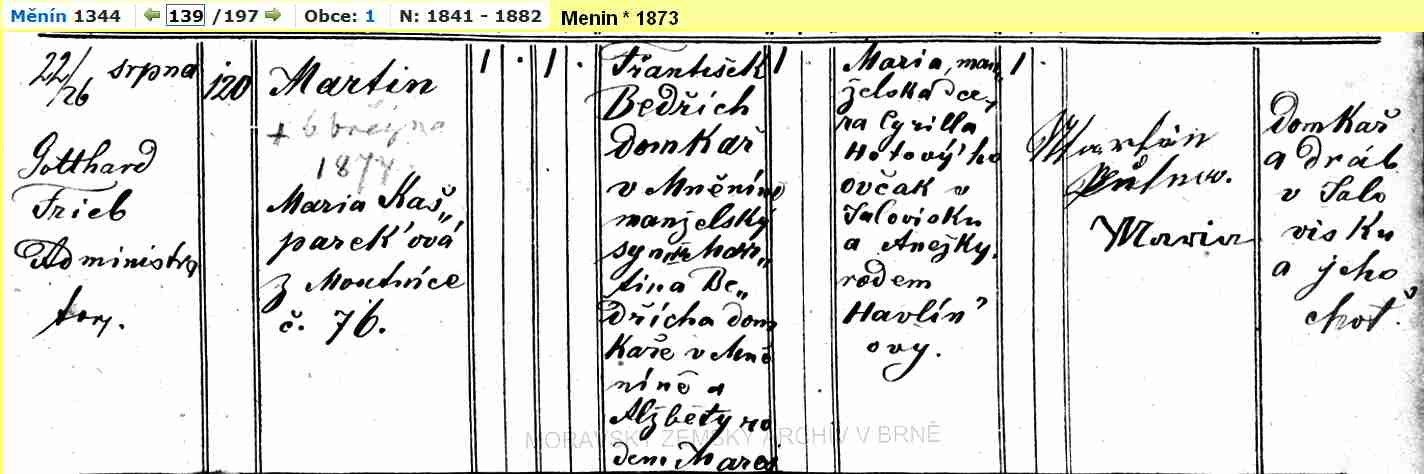 Měnín 1344 139 /197 Obce: 1 N: 1841 - 1882 Menin * 1873
22/26 srpna
Gotthard
Frieb
Administra
tor.
120
Martin
+ 6 března
1877
Maria Kaš„
párek'ová
z Moutnice
č. 76.
1 . 1 .
František
Bedřich
domkař
v Mněníně
manželský
syn Mar„
tina Be„
dřicha dom
kaře v Mně
níně a
Alžběty ro
dem Mareš
1
Maria, man„
želská dce„
ra Cyrilla
Hotový'ho
ovčak v
Jalovisku
a Anežky,
rodem
Havlín'
ový.
1 .
Martin
Maria
Domkař
a dráb
v Jalo
visku
a jeho
choť.
MORAVSKÝ ZEMSKÝ ARCHIV V BRNĚ